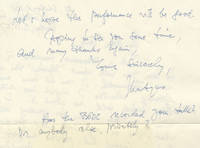 hope the performance will be good.
Hoping to see you some time,
and many thanks again,
Yours sincerely,
Has the BBC recorded your talks?
Or anybody else, privately?